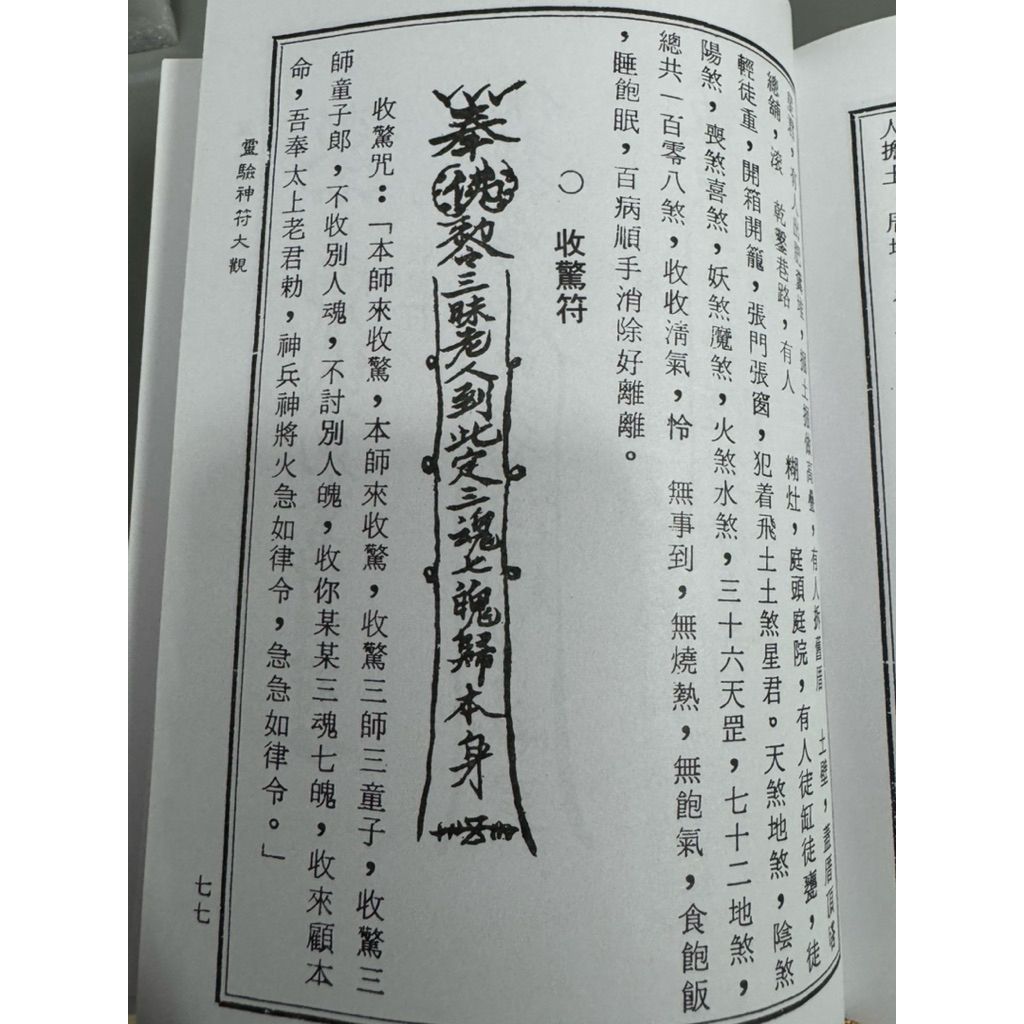 土壁，蓋厝頂
有人拆舊厝
糊灶，庭頭庭院，有人徒缸徒甕，徒
總舖，滾　乾鑿巷路，有人
輕徒重，開箱開籠，張門張窗，犯着飛土土煞星君。天煞地煞，陰煞
陽煞，喪煞喜煞，妖煞魔煞，火煞水煞，三十六天罡，七十二地煞，
總共一百零八煞，收收清氣，怜　無事到，無燒熱，無飽氣，食飽飯
，睡飽眠，百病順手消除好離離。
○　收驚符
奉
佛
三昧老人到此定三魂七魄歸本身
收驚咒：「本師來收驚，本師來收驚，收驚三師三童子，收驚三
師童子郎，不收別人魂，不討別人魄，收你某某三魂七魄，收來顧本
命，吾奉太上老君勅，神兵神將火急如律令，急急如律令。」
靈驗神符大觀
七七